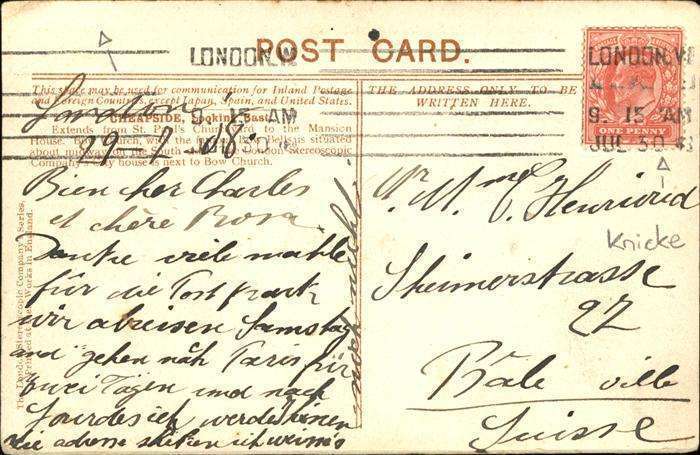 POST CARD.
LONDON.W
9. 15 AM
LONDON.W
9. 15 AM
JUL 30
ONE PENNY
This space may be used for communication for Inland Postage
and Foreign Countries, except Japan, Spain, and United States.
THE ADDRESS ONLY TO BE
WRITTEN HERE.
CHEAPSIDE, Looking East
Extends from St. Paul's Churchyard to the Mansion
House. Bow Church, with the famous Bow Bells, is situated
about midway on the South side. London Stereoscopic
Company's City house is next to Bow Church.
London
29. 7. 08.
Bien cher Charles
et chère Rosa
Danke viele mahle
für die Post
wir abreisen Samstag
and gehen nåh Paris für
zwei Tagen und nach
Lourdes ich werde ihnen
die adresse shiken ich weiss
nicht
The London Stereoscopic Company's Series.
Printed at their Works in England.
Mr. Mme
Sheimerstrasse
27
Bâle ville
Suisse
Knicke